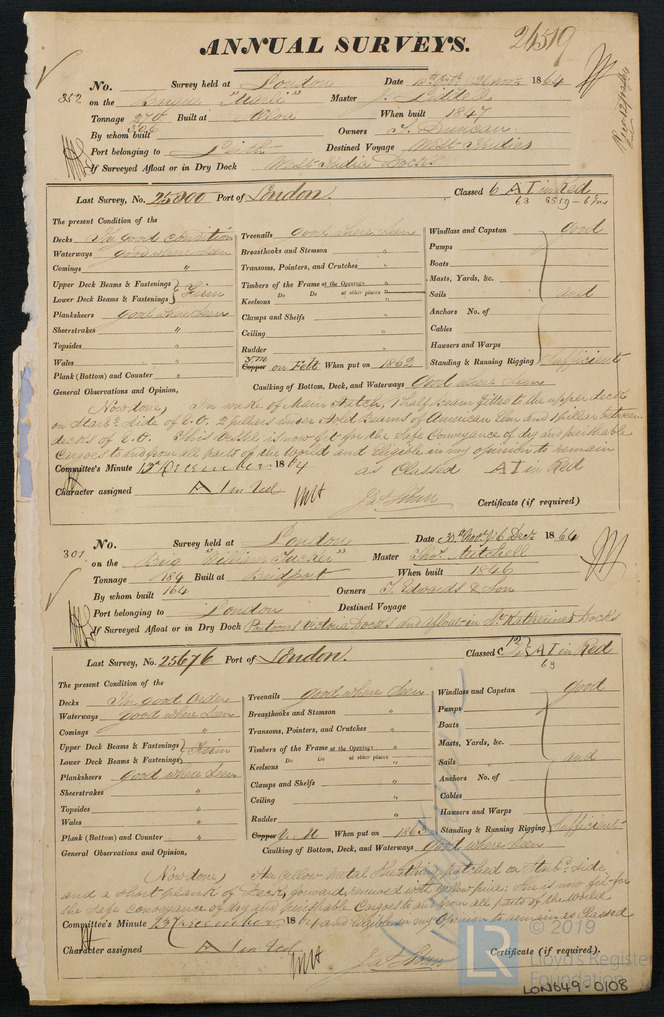 ANNUAL SURVEYS.
26519
No. Survey held at London Date 1864
352 on the "Marie" Master J.
Tonnage 270 Built at When built 1847
By whom built 306 Owners J. Duncan
Port belonging to Leith Destined Voyage West Indies
If Surveyed Afloat or in Dry Dock West India Docks
Last Survey, No. 25200 Port of London. Classed 6 A I in Red
63 6519 - 6 yrs
The present Condition of the
Decks In good condition
Waterways good where seen
Comings "
Upper Deck Beams & Fastenings
Lower Deck Beams & Fastenings } Firm
Planksheers good where seen
Sheerstrakes "
Topsides "
Wales "
Plank (Bottom) and Counter "
Treenails good where seen
Breasthooks and Stemson "
Transoms, Pointers, and Crutches "
Timbers of the Frame at the Openings "
Do Do at other places "
Keelsons "
Clamps and Shelfs "
Ceiling "
Rudder "
Copper Y.M. on Felt When put on 1862
Windlass and Capstan good
Pumps
Boats
Masts, Yards, &c.
Sails and
Anchors No. of
Cables
Hawsers and Warps
Standing & Running Rigging Sufficient
Caulking of Bottom, Deck, and Waterways good where seen
General Observations and Opinion,
Now done, In wake of Main Hatch, 1 half beam fitted to the upper deck
on Starbd side of 6.0, 2 pillars under Hold Beams of American Elm and 1 pillar between
decks of 6.0. This Vessel is now fit for the Safe Conveyance of dry and perishable
Cargoes to and from all parts of the World and Eligible in my opinion to remain
Committee's Minute 13th December 1864 as Classed A I in Red
Character assigned A I in Red
Certificate (if required)
No. Survey held at London Date 30th Novr. & 6 Decr. 1864
301 on the Brig "William Tucker" Master Thos. Mitchell
Tonnage 184 Built at Bridport When built 1846
By whom built 164 Owners J. Edwards & Son
Port belonging to London Destined Voyage
If Surveyed Afloat or in Dry Dock Pontoons Victoria Docks and afloat in St Katherines Docks
Last Survey, No. 25676 Port of London. Classed A I in Red
63
The present Condition of the
Decks In good order
Waterways good where seen
Comings "
Upper Deck Beams & Fastenings
Lower Deck Beams & Fastenings } Firm
Planksheers good where seen
Sheerstrakes "
Topsides "
Wales "
Plank (Bottom) and Counter "
Treenails good where seen
Breasthooks and Stemson "
Transoms, Pointers, and Crutches "
Timbers of the Frame at the Openings "
Do Do at other places "
Keelsons "
Clamps and Shelfs "
Ceiling "
Rudder "
Copper Y.M. When put on 1863
Windlass and Capstan good
Pumps
Boats
Masts, Yards, &c.
Sails and
Anchors No. of
Cables
Hawsers and Warps
Standing & Running Rigging Sufficient
Caulking of Bottom, Deck, and Waterways good where seen
General Observations and Opinion,
Now done, The yellow metal Sheathing patched on Starbd side
and a short plank of Deck, forward, renewed with yellow pine: She is now fit for
the Safe Conveyance of dry and perishable Cargoes to and from all parts of the World
Committee's Minute 13th December 1864 and Eligible in my Opinion to remain as Classed
Character assigned A I in Red
Certificate (if required).
LR © 2019
Lloyd's Register
Foundation
LON649-0108